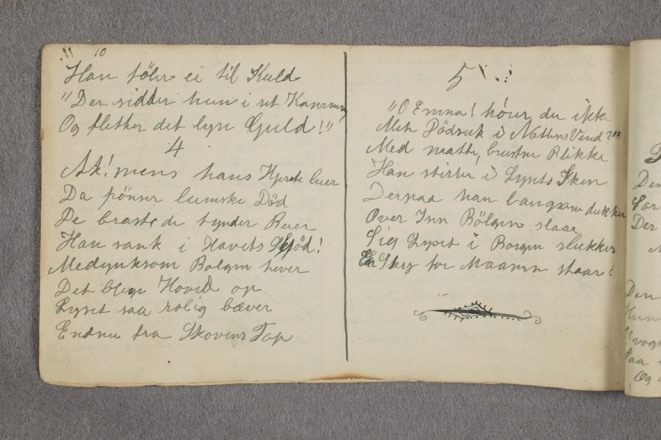 10
Han föler ei til Kuld
"Der sidder hun i sit Kammer
Og fletter det lyse Guld!"
4
Ak! mens hans Hjerte luer
Da pönser lumske Död
De braste de tynder Buer
Han sank i Havets Sköd!
Medynksom Bolgen hever
Det blege Hoved op
Lyset saa rolig bæver
Endnu fra Skovens Top
5
"O Emma! hörer du ikke
Mit Nattens Vind?"
Med matte, brustne Blikke
Han stirrer i Lysets Sken
Derpaa han langsom dukker
Over Inn Bölgen slaar
Sig Lyset i Borgen slukker
En Sky for Maanen staar!